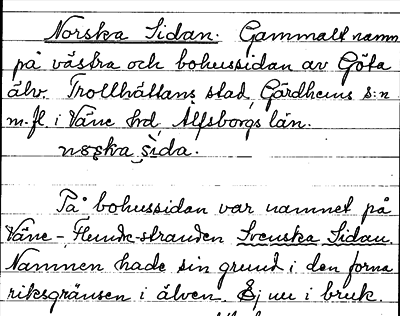 Norska Sidan. Gammalt namn
på västra och bohussidan av Göta
älv. Trollhättans stad, Gärdhems s:n
m.fl. i Väne hd, Älfsborgs län.
norska sida.
På bohussidan var namnet på
Väne-Flundre-stranden Svenska Sidan.
Namnen hade sin grund i den forna
riksgränsen i älven. Ej nu i bruk.